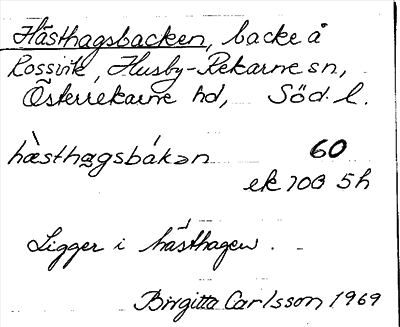 Hästhagsbacken, backe å
Rossvik, Husby-Rekarne sn,
Österrekarne hd, Söd. l.
hæ̀sthagsbákən 60
ek 10G 5h
Ligger i hästhagen.
Birgitta Carlsson 1969